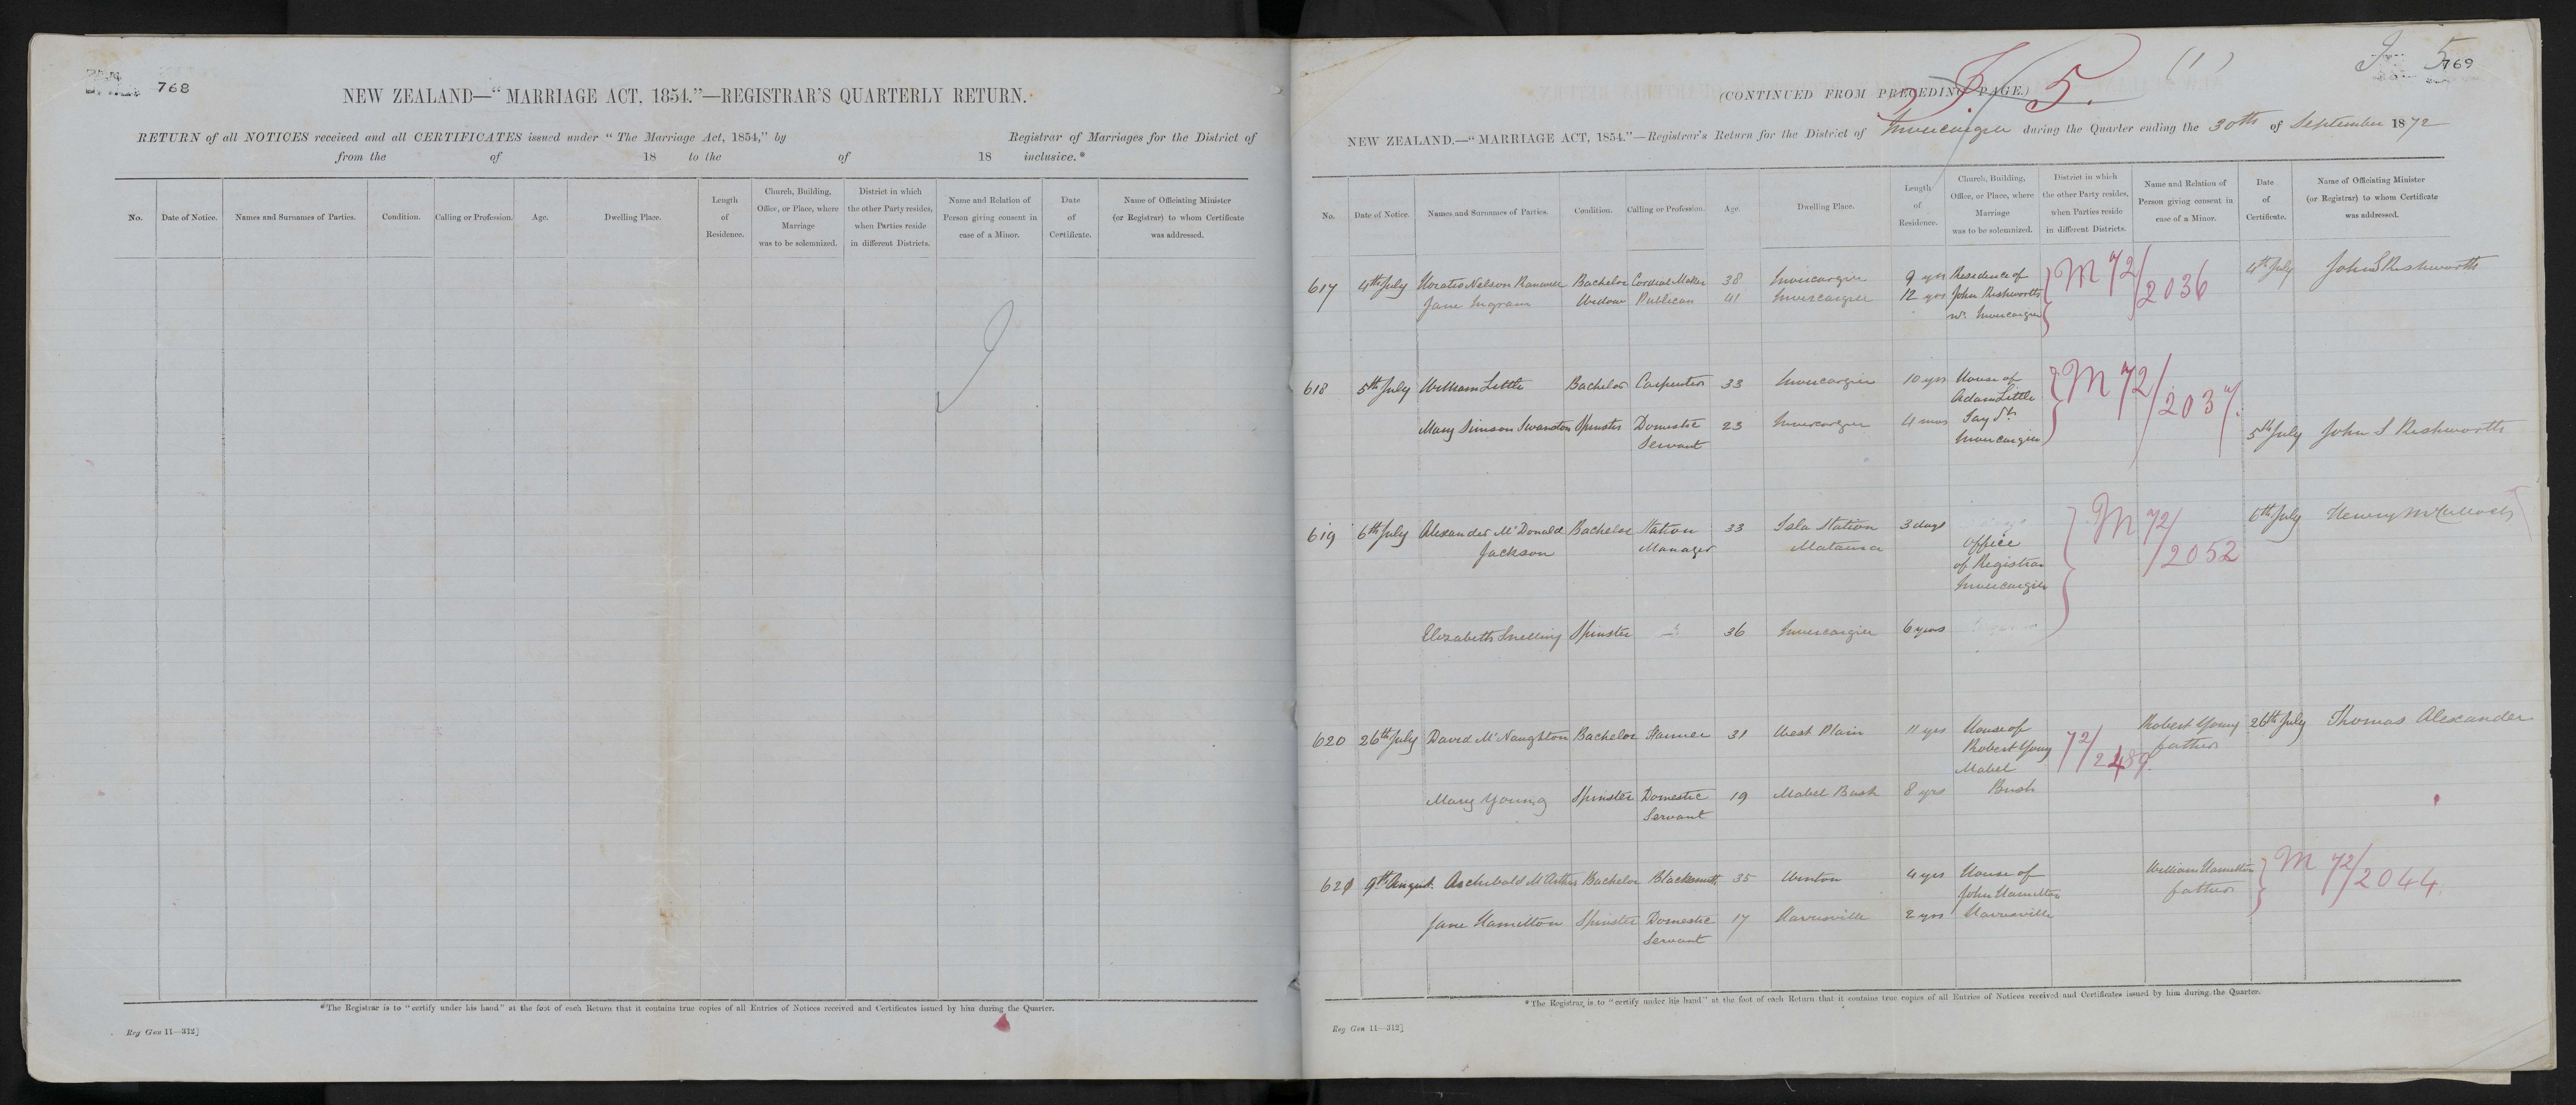 768
NEW ZEALAND—“MARRIAGE ACT, 1854.”—REGISTRAR'S QUARTERLY RETURN.
RETURN of all NOTICES received and all CERTIFICATES issued under “The Marriage Act, 1854,” by Registrar of Marriages for the District of
from the of 18 to the of 18 inclusive.*
No. Date of Notice. Names and Surnames of Parties. Condition. Calling or Profession. Age. Dwelling Place. Length of Residence. Church, Building, Office, or Place, where Marriage was to be solemnized. District in which the other Party resides, when Parties reside in different Districts. Name and Relation of Person giving consent in case of a Minor. Date of Certificate. Name of Officiating Minister (or Registrar) to whom Certificate was addressed.
*The Registrar is to “certify under his hand” at the foot of each Return that it contains true copies of all Entries of Notices received and Certificates issued by him during the Quarter.
Reg Gen 11—312]
(1)
5
769
5.
(CONTINUED FROM PRECEDING PAGE.)
NEW ZEALAND.—“MARRIAGE ACT, 1854.”—Registrar's Return for the District of Invercargill during the Quarter ending the 30th of September 1872
No. Date of Notice. Names and Surnames of Parties. Condition. Calling or Profession. Age. Dwelling Place. Length of Residence. Church, Building, Office, or Place, where Marriage was to be solemnized. District in which the other Party resides, when Parties reside in different Districts. Name and Relation of Person giving consent in case of a Minor. Date of Certificate. Name of Officiating Minister (or Registrar) to whom Certificate was addressed.
617 4th July Horatio Nelson Bachelor Cordial Maker 38 Invercargill 9 yrs Residence of M 72/2036 4th July John S Rishworth
Jane Ingram Widow Publican 41 Invercargill 12 yrs John Rishworth
Invercargill
618 5th July William Little Bachelor Carpenter 33 Invercargill 10 yrs House of M 72/2037.
Adam Little
Mary Simson Swanston Spinster Domestic 23 Invercargill 4 mos Tay St 5th July John S Rishworth
Servant Invercargill
619 6th July Alexander McDonald Bachelor Station 33 Isla Station 3 days M 72/2052 6th July Henry McCulloch
Jackson Manager Mataura Office
of Registrar
Invercargill
Elizabeth Snelling Spinster 36 Invercargill 6 years
620 26th July David McNaughton Bachelor Farmer 31 West Plain 11 yrs House of 72/2489. Robert Young 26th July Thomas Alexander
Robert Young father
Mabel
Mary Young Spinster Domestic 19 Mabel Bush 8 yrs Bush
Servant
621 9th August. Archibald McArthur Bachelor Blacksmith 35 Winton 4 yrs House of William Hamilton M 72/2044
John Hamilton father
Jane Hamilton Spinster Domestic 17 Harrisville 2 yrs Harrisville
Servant
*The Registrar is to “certify under his hand” at the foot of each Return that it contains true copies of all Entries of Notices received and Certificates issued by him during the Quarter.
Reg Gen 11—312]